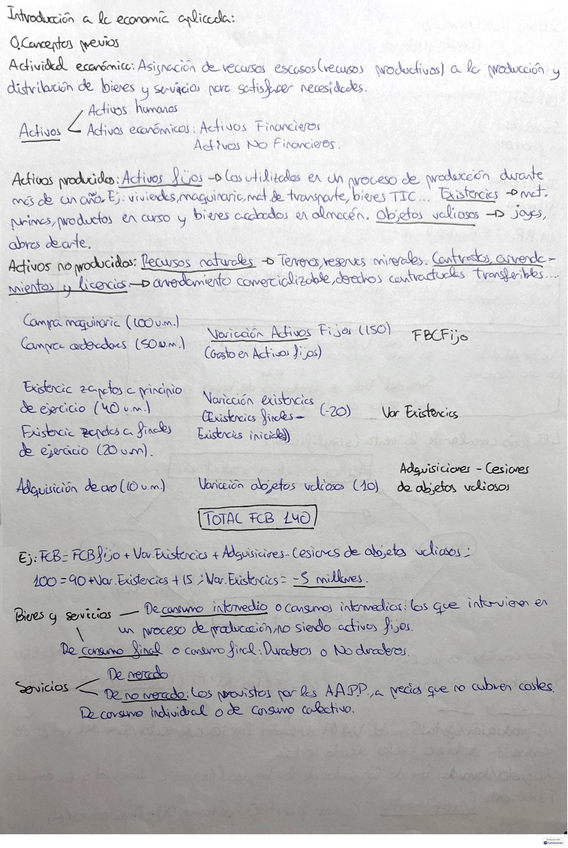 Introducción a la economía aplicada:
0. Conceptos previos
Actividad económica: Asignación de recursos escasos (recursos productivos) a la producción y
distribución de bienes y servicios para satisfacer necesidades.
Activos humanos
Activos Activos económicos: Activos Financieros
Activos No Financieros.
Activos producidos: Activos fijos → Los utilizados en un proceso de producción durante
más de un año. Ej. viviendas, maquinaria, mat. de transporte, bienes TIC... Existencias → mat.
primas, productos en curso y bienes acabados en almacén. Objetos valiosos → joyas,
obras de arte.
Activos no producidos: Recursos naturales → Terrenos, reservas minerales. Contratos, arrenda-
mientos y licencias → arrendamiento comercializable, derechos contractuales transferibles...
Compra maquinaria (100 u.m.) Variación Activos Fijos (150) FBCFijo
Compra ordenadores (50 u.m.) (Gasto en Activos fijos)
Existencia zapatos a principio
de ejercicio (40 u.m.)
Existencia zapatos a finales
de ejercicio (20 u.m).
Variación existencias
(Existencias finales - (-20) Var Existencias
Existencias iniciales)
Adquisición de oro (10 u.m) Variación objetos valiosos (10) Adquisiciones - Cesiones
de objetos valiosos
TOTAL FCB 140
Ej: FCB = FCB fijo + Var. Existencias + Adquisiciones - Cesiones de objetos valiosos;
100 = 90 + Var Existencias + 15; Var. Existencias = -5 millones.
Bienes y servicios — De consumo intermedio o consumos intermedios: los que intervienen en
un proceso de producción, no siendo activos fijos.
De consumo final o consumo final: Duraderos o No duraderos.
Servicios De mercado
De no mercado: Los provistos por las AAPP, a precios que no cubren costes.
De consumo individual o de consumo colectivo.